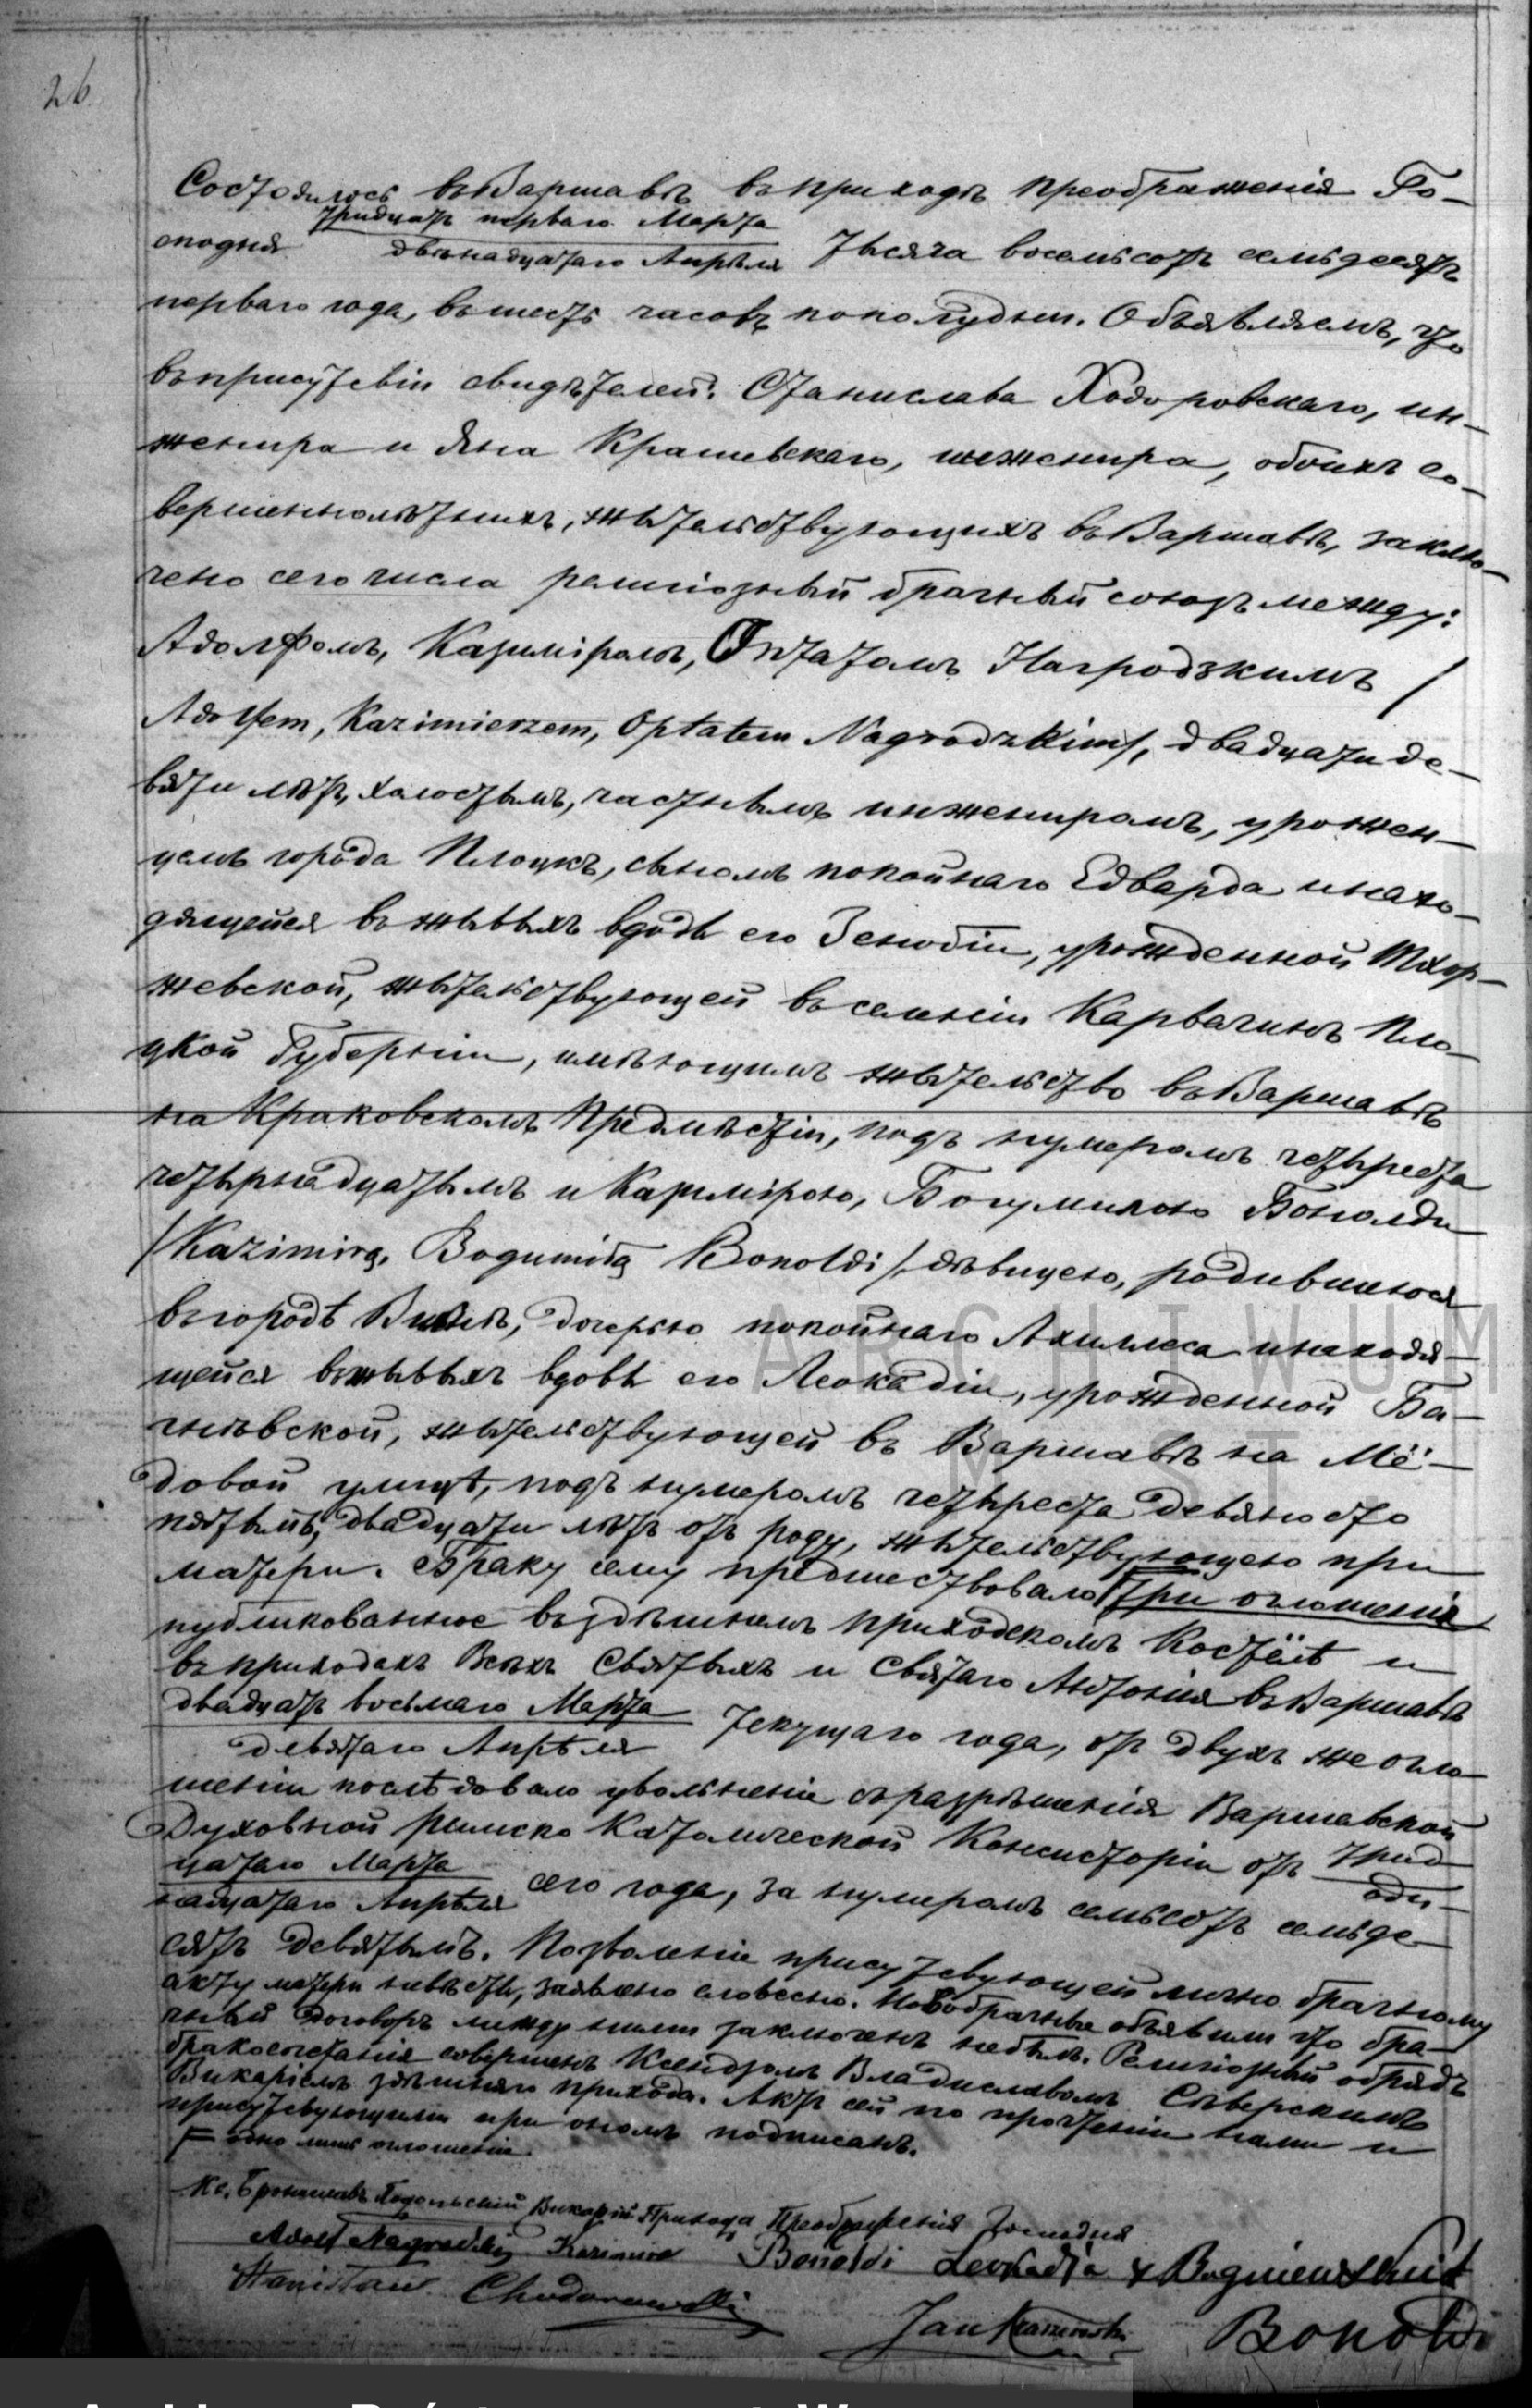 26.
Состоялось въ Варшавѣ въ приходѣ Преображенія Го-
тридцать перваго Марта
сподня двѣнадцатаго Апрѣля тысяча восемьсотъ семьдесятъ
перваго года, въ шесть часовъ пополудни. Объявляемъ, что
въ присутствіи свидѣтелей: Станислава Ходоровскаго, ин-
женира и Яна Крашевскаго, инженира, обоихъ со-
вершеннолѣтнихъ, жытельствующихъ въ Варшавѣ, заклю-
чено сего числа религіозный брачный союзъ между:
Адолфомъ, Казиміромъ, Оптатомъ Нагродзкимъ /
Adolfem, Kazimierzem, Optatem Nagrodzkim/, двадцати де-
вяти лѣтъ, холостымъ, частнымъ инжениромъ, урожен-
цемъ города Плоцкъ, сыномъ покойнаго Едварда и нахо-
дящейся въ жывыхъ вдовѣ его Зенобіи, урожденной Тхор-
жевской, жытельствующей въ селеніи Карвачинъ Пло-
цкой Губерніи, имѣющимъ жытельство въ Варшавѣ
на Краковскомъ Предмѣстіи, подъ нумеромъ четыреста
четырнадцатымъ и Казимірою, Богумилою Бонолди
/Kazimirą, Bogumiłą Bonoldi/ дѣвицею, родившеюся
въ городѣ Вильнѣ, дочерью покойнаго Ахиллеса и находя-
щейся въ жывыхъ вдовѣ его Леокадіи, урожденной Ба-
гнѣвской, жытельствующей въ Варшавѣ на Мё-
довой улицѣ, подъ нумеромъ четыреста девяносто
пятымъ, двадцати лѣтъ отъ роду, жытельствующею при
матери. Браку сему предшествовало три оглошенія
публикованное въ здѣшнемъ приходскомъ Костёлѣ и
въ приходахъ Всѣхъ Святыхъ и Святаго Антонія въ Варшавѣ
двадцать восьмаго Марта
девятаго Апрѣля текущаго года, отъ двухъ же огло
шеніи послѣдовало увольненіе съ разрѣшенія Варшавской
Духовной Римско Католической Консисторіи отъ трид
цатаго Марта оди-
надцатаго Апрѣля сего года, за нумеромъ семьсотъ семьде-
сятъ девятымъ. Позволеніе присутствующей лично брачному
акту матери невѣсты, заявлено словесно. Новобрачные объявили что бра-
чный договоръ между ними заключенъ небылъ. Религіозный обрядъ
бракосочетанія совершенъ Ксендзомъ Владиславомъ Сѣверскимъ
Викаріемъ здѣшняго прихода. Актъ сей по прочтеніи нами и
присутствующими при ономъ подписанъ.
одно лишь оглошеніе.
Кс. Брониславъ Подольскій Викарій Прихода Преображенія Господня
Adolf Nagrodzki Kazimira Bonoldi Leokadja z Bagniewskich
Stanisław Chodorowski
Jan Kraszewski Bonoldi
ARCHIWUM
M ST.